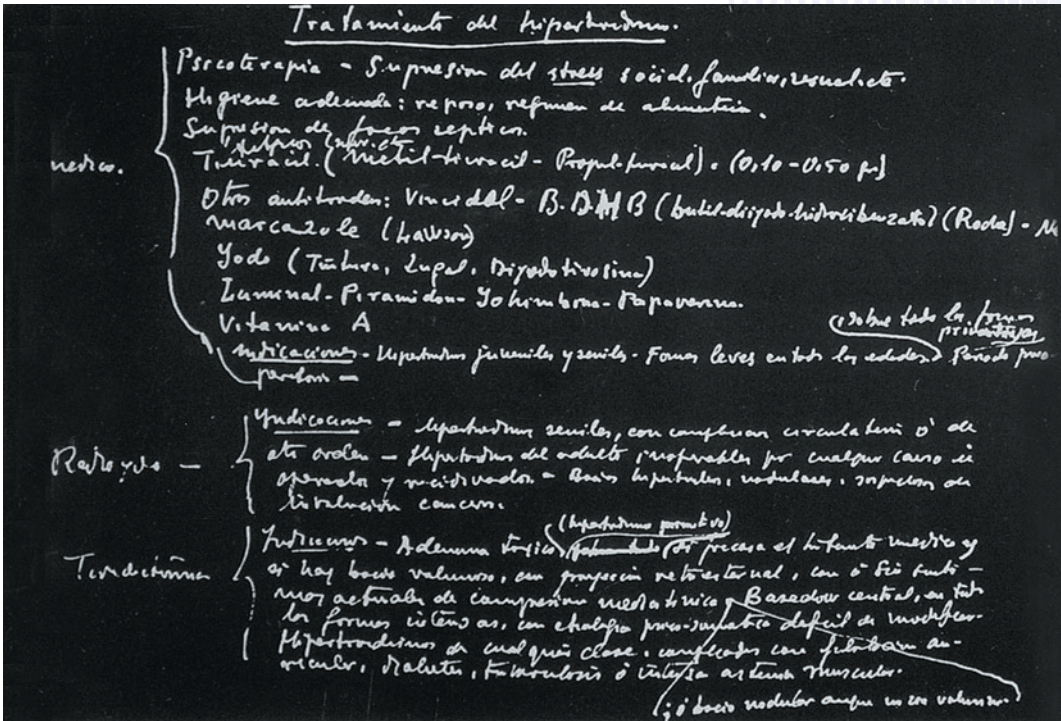 Tratamiento del hipertiroidismo.
Psicoterapia - Supresion del stress social, familiar, sexual, etc.
Higiene adecuada: reposo, regimen de alimentación.
Supresion de focos septicos.
medico.
Tiuracil. (Metil-tiuracil - Propil-tiuracil). (0,10-0,50 gr)
Otros antitiroideos: - B.D.H B (butil-diyodo-hidroxibenzoato) (Roche) -
marcazole (Lawson)
Yodo (Tintura, Lugol, Diyodotirosina)
Luminal - Piramidon - Yohimbina - Papaverina.
Vitamina A
(sobre todo las formas
primitivas
Indicaciones - Hipertiroidismos juveniles y seniles - Formas leves en todas las edades. Periodo
Indicaciones - Hipertiroidismos seniles, con complicaciones circulatorias ó de
Radioyodo -
otro orden - Hipertiroidismos del adulto, inoperables por cualquier causa ú
operados y recidivados - Bocios nodulares, sospechosos de
cancerosa.
(hipertiroidismo primitivo)
Indicaciones - Adenoma toxico si fracasa el tratamiento medico y
Tiroidectomia
si hay bocio voluminoso, con proyección retroesternal, con ó sin
actuales de compresion mediastinica. Basedow central, en todas
las formas intensas, con etiologia psico-somatica dificil de modificar.
Hipertiroidismos de cualquier clase, complicados con fibrilacion au-
ricular, diabetes, tuberculosis ó intensa astenia muscular.
(; ó bocio nodular aunque no sea voluminoso.